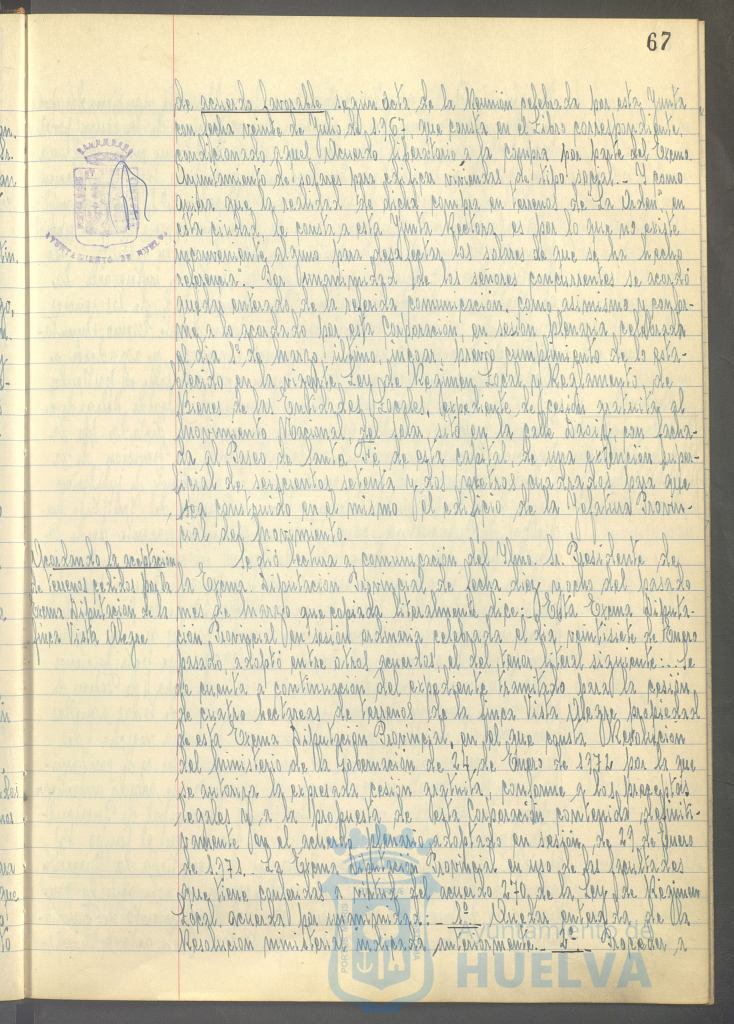 67
de acuerdo favorable según acta de la Reunión celebrada por esta Junta
con fecha veinte de Julio de 1.967, que consta en el Libro correspondiente,
condicionado aquel Acuerdo liberatorio a la compra por parte del Excmo.
Ayuntamiento de solares para edificar viviendas de tipo social.- Y como
quiera que la realidad de dicha compra en terrenos de La Orden" en
esta ciudad le consta a esta Junta Rectora, es por lo que no existe
inconveniente alguno para desafectar los solares de que se ha hecho
referencia". Por unanimidad de los señores concurrentes se acordó
quedar enterado de la referida comunicación, como asimismo y confor-
me a lo acordado por esta Corporación, en sesión plenaria celebrada
el día 1º de marzo último, incoar, previo cumplimiento de lo esta-
blecido en la vigente Ley de Régimen Local y Reglamento de
Bienes de las Entidades Locales, expediente de cesión gratuita al
Movimiento Nacional del solar sito en la calle con facha-
da al Paseo de Santa Fé de esta capital, de una extensión super-
ficial de seiscientos setenta y dos metros cuadrados para que
sea construido en el mismo el edificio de la Jefatura Provin-
cial del Movimiento.
Acordando la aceptación
de terrenos cedidos por la
Excma Diputación de la
finca Vista Alegre
Se dió lectura a comunicación del Ilmo. Sr. Presidente de
la Excma. Diputación Provincial de fecha diez y ocho del pasado
mes de marzo que copiada literalmente dice: "Esta Excma Diputa-
ción Provincial en sesión ordinaria celebrada el día veintisiete de Enero
pasado adoptó entre otros acuerdos el del tenor literal siguiente:.- Se
dé cuenta a continuación del expediente tramitado para la cesión
de cuatro hectareas de terrenos de la finca Vista Alegre propiedad
de esta Excma Diputación Provincial, en el que consta Resolución
del Ministerio de la Gobernación de 24 de Enero de 1972 por la que
se autoriza la expresada cesión gratuita, conforme a los preceptos
legales y a la propuesta de esta Corporación contenida definiti-
vamente en el acuerdo plenario adoptado en sesión de 29 de Enero
de 1971.- La Excma Diputación Provincial en uso de las facultades
que tiene conferidas virtud del acuerdo 270 de la Ley de Régimen
Local acuerda por unanimidad:- 1º Quedar enterada de la
Resolución ministerial indicada anteriormente.- 2º Proceder a
AYUNTAMIENTO DE HUELVA
Ayuntamiento de
HUELVA